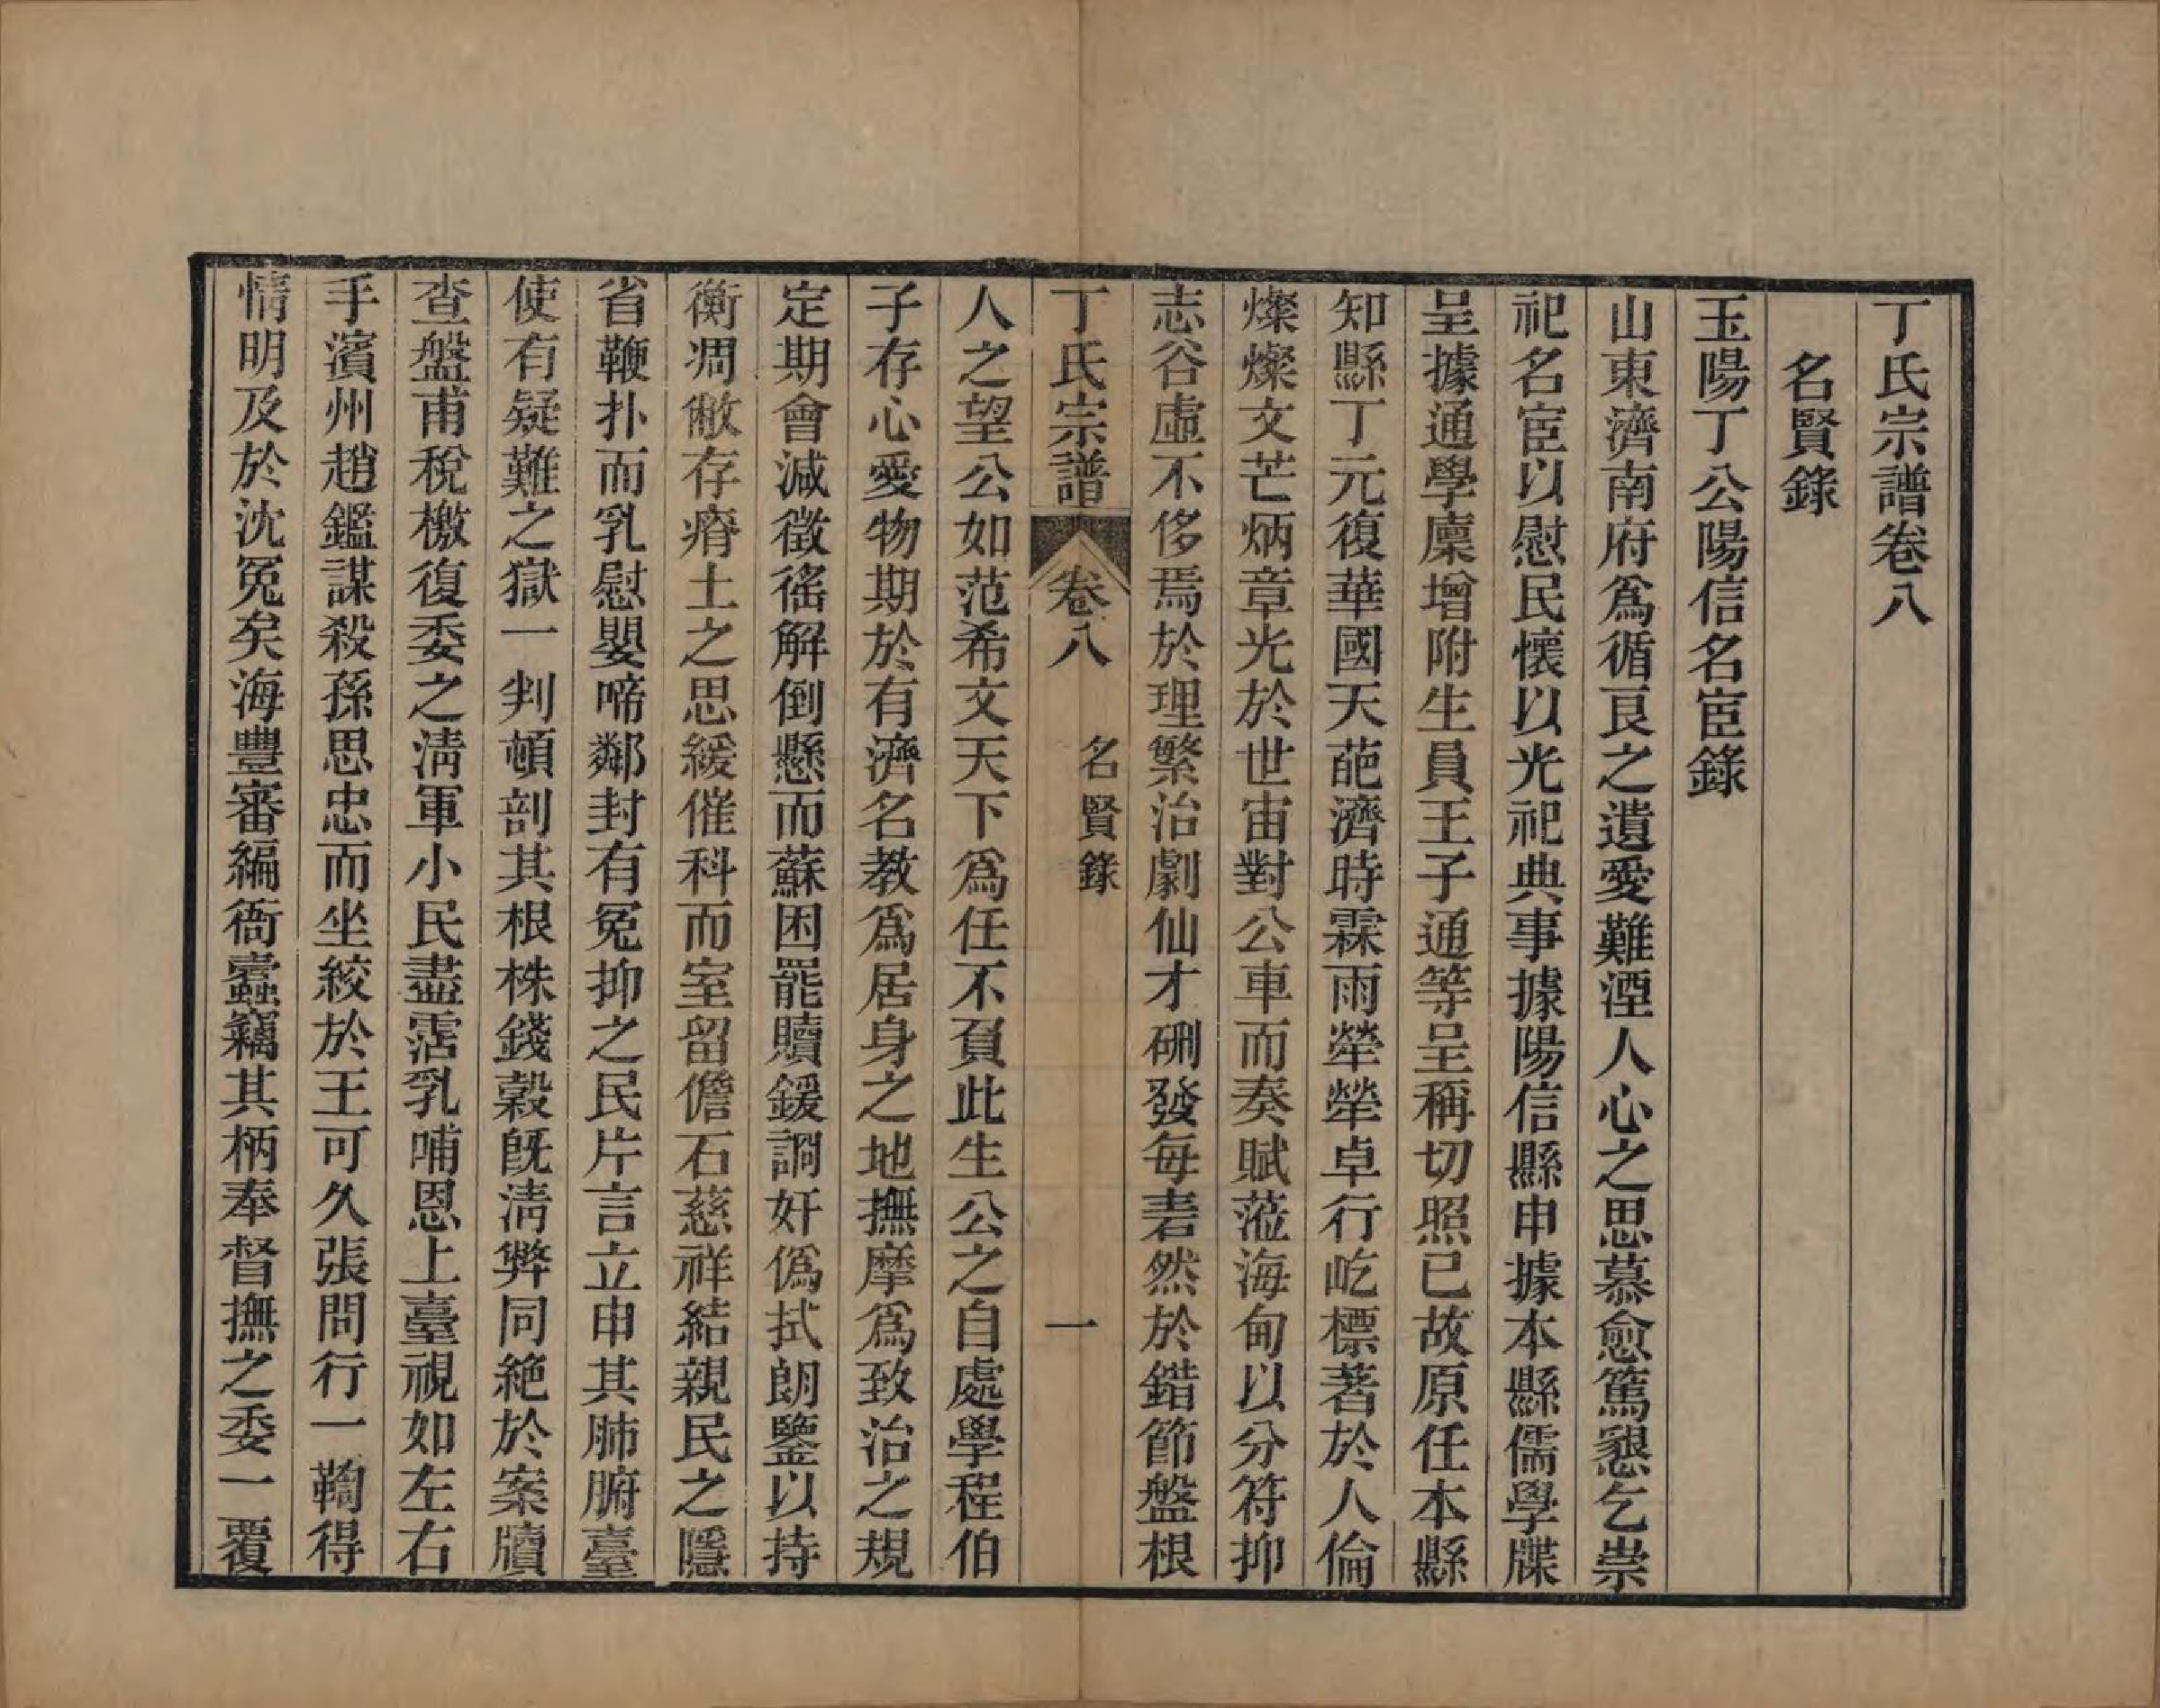 丁氏宗譜卷八
名賢錄
玉陽丁公陽信名宦錄
山東濟南府爲循良之遺愛難湮人心之思慕愈篤懇乞崇
祀名宦以慰民懷以光祀典事據陽信縣申據本縣儒學牒
呈據通學廩增附生員王子通等呈稱切照已故原任本縣
知縣丁元復華國天葩濟時霖雨犖犖卓行屹標著於人倫
燦燦文芒炳章光於世宙對公車而奏賦蒞海甸以分符抑
志谷虛不侈焉於理繁治劇仙才硎發每砉然於錯節盤根
丁氏宗譜 卷八 名賢錄 一
人之望公如范希文天下爲任不負此生公之自處學程伯
子存心愛物期於有濟名教爲居身之地撫摩爲致治之規
定期會減徵徭解倒懸而蘇困罷贖鍰詗奸僞拭朗鑒以持
衡凋敝存瘠土之思緩催科而室留儋石慈祥結親民之隱
省鞭扑而乳慰嬰啼鄰封有冤抑之民片言立申其肺腑臺
使有疑難之獄一判頓剖其根株錢穀旣淸弊同絶於案牘
查盤甫稅檄復委之淸軍小民盡霑乳哺恩上臺視如左右
手濱州趙鑑謀殺孫思忠而坐絞於王可久張問行一鞫得
情明及於沈冤矣海豐審編衙蠹竊其柄奉督撫之委一覆